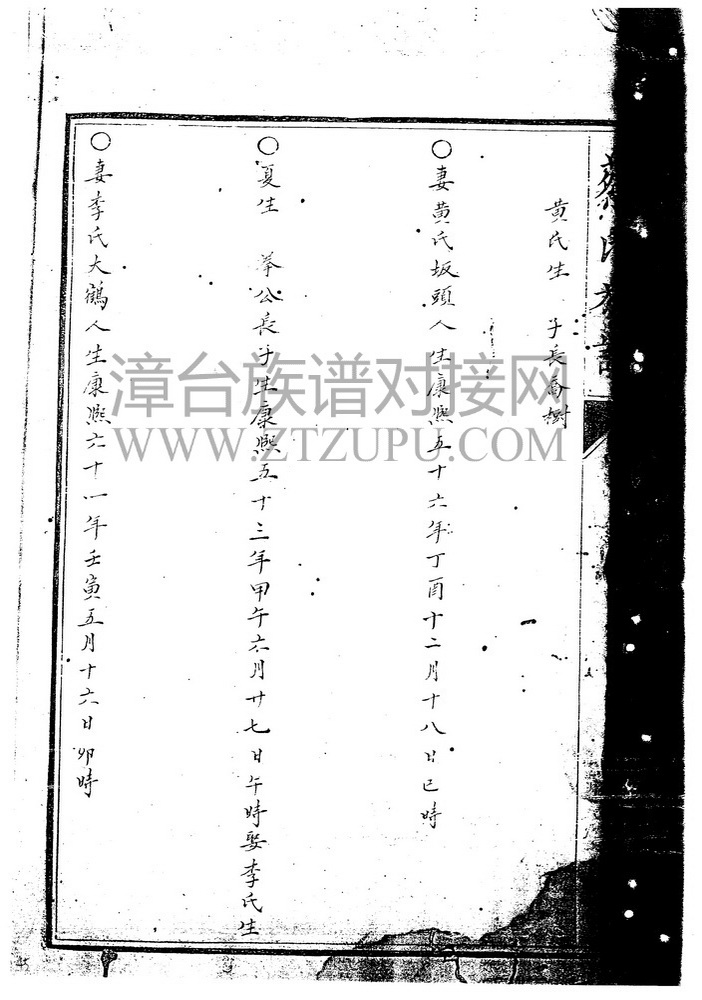 黄氏生 子長喬樹
○妻黄氏坂頭人生康熙五十六年丁酉十二月十八日巳時
○夏生 举公長子生康熙五十三年甲午六月廿七日午時娶李氏生
○妻李氏大鶴人生康熙六十一年壬寅五月十六日卯時
漳台族谱对接网
WWW.ZTZUPU.COM